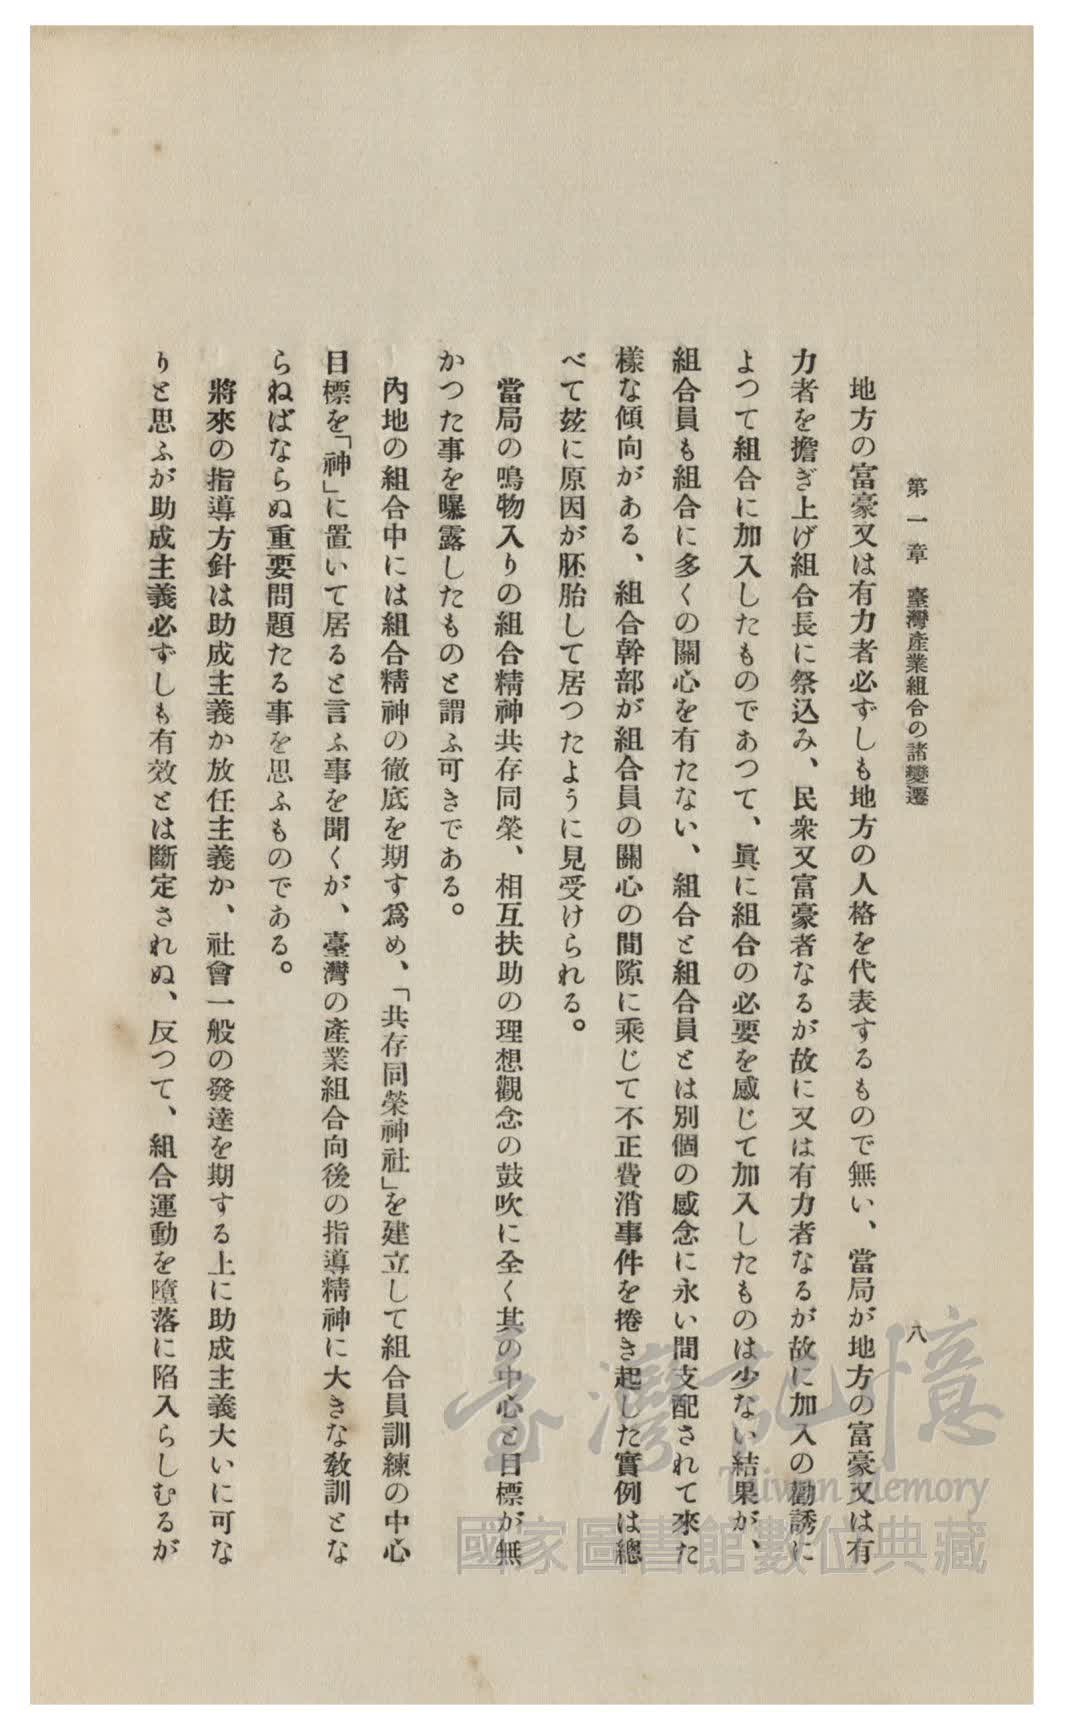 第一章　臺灣產業組合の諸變遷
八
地方の富豪又は有力者必ずしも地方の人格を代表するもので無い、當局が地方の富豪又は有
力者を擔ぎ上げ組合長に祭込み、民衆又富豪者なるが故に又は有力者なるが故に加入の勸誘に
よつて組合に加入したものであつて、眞に組合の必要を感じて加入したものは少ない結果が、
組合員も組合に多くの關心を有たない、組合と組合員とは別個の感念に永い間支配されて來た
樣な傾向がある、組合幹部が組合員の關心の間隙に乘じて不正費消事件を捲き起した實例は總
べて玆に原因が胚胎して居つたように見受けられる。
當局の鳴物入りの組合精神共存同榮、相互扶助の理想觀念の鼓吹に全く其の中心と目標が無
かつた事を曝露したものと謂ふ可きである。
內地の組合中には組合精神の徹底を期す爲め、「共存同榮神社」を建立して組合員訓練の中心
目標を「神」に置いて居ると言ふ事を聞くが、臺灣の產業組合向後の指導精神に大きな敎訓とな
らねばならぬ重要問題たる事を思ふものである。
將來の指導方針は助成主義か放任主義か、社會一般の發達を期する上に助成主義大いに可な
りと思ふが助成主義必ずしも有效とは斷定されぬ、反つて、組合運動を墮落に陷入らしむるが
臺灣記憶
Taiwan Memory
國家圖書館數位典藏